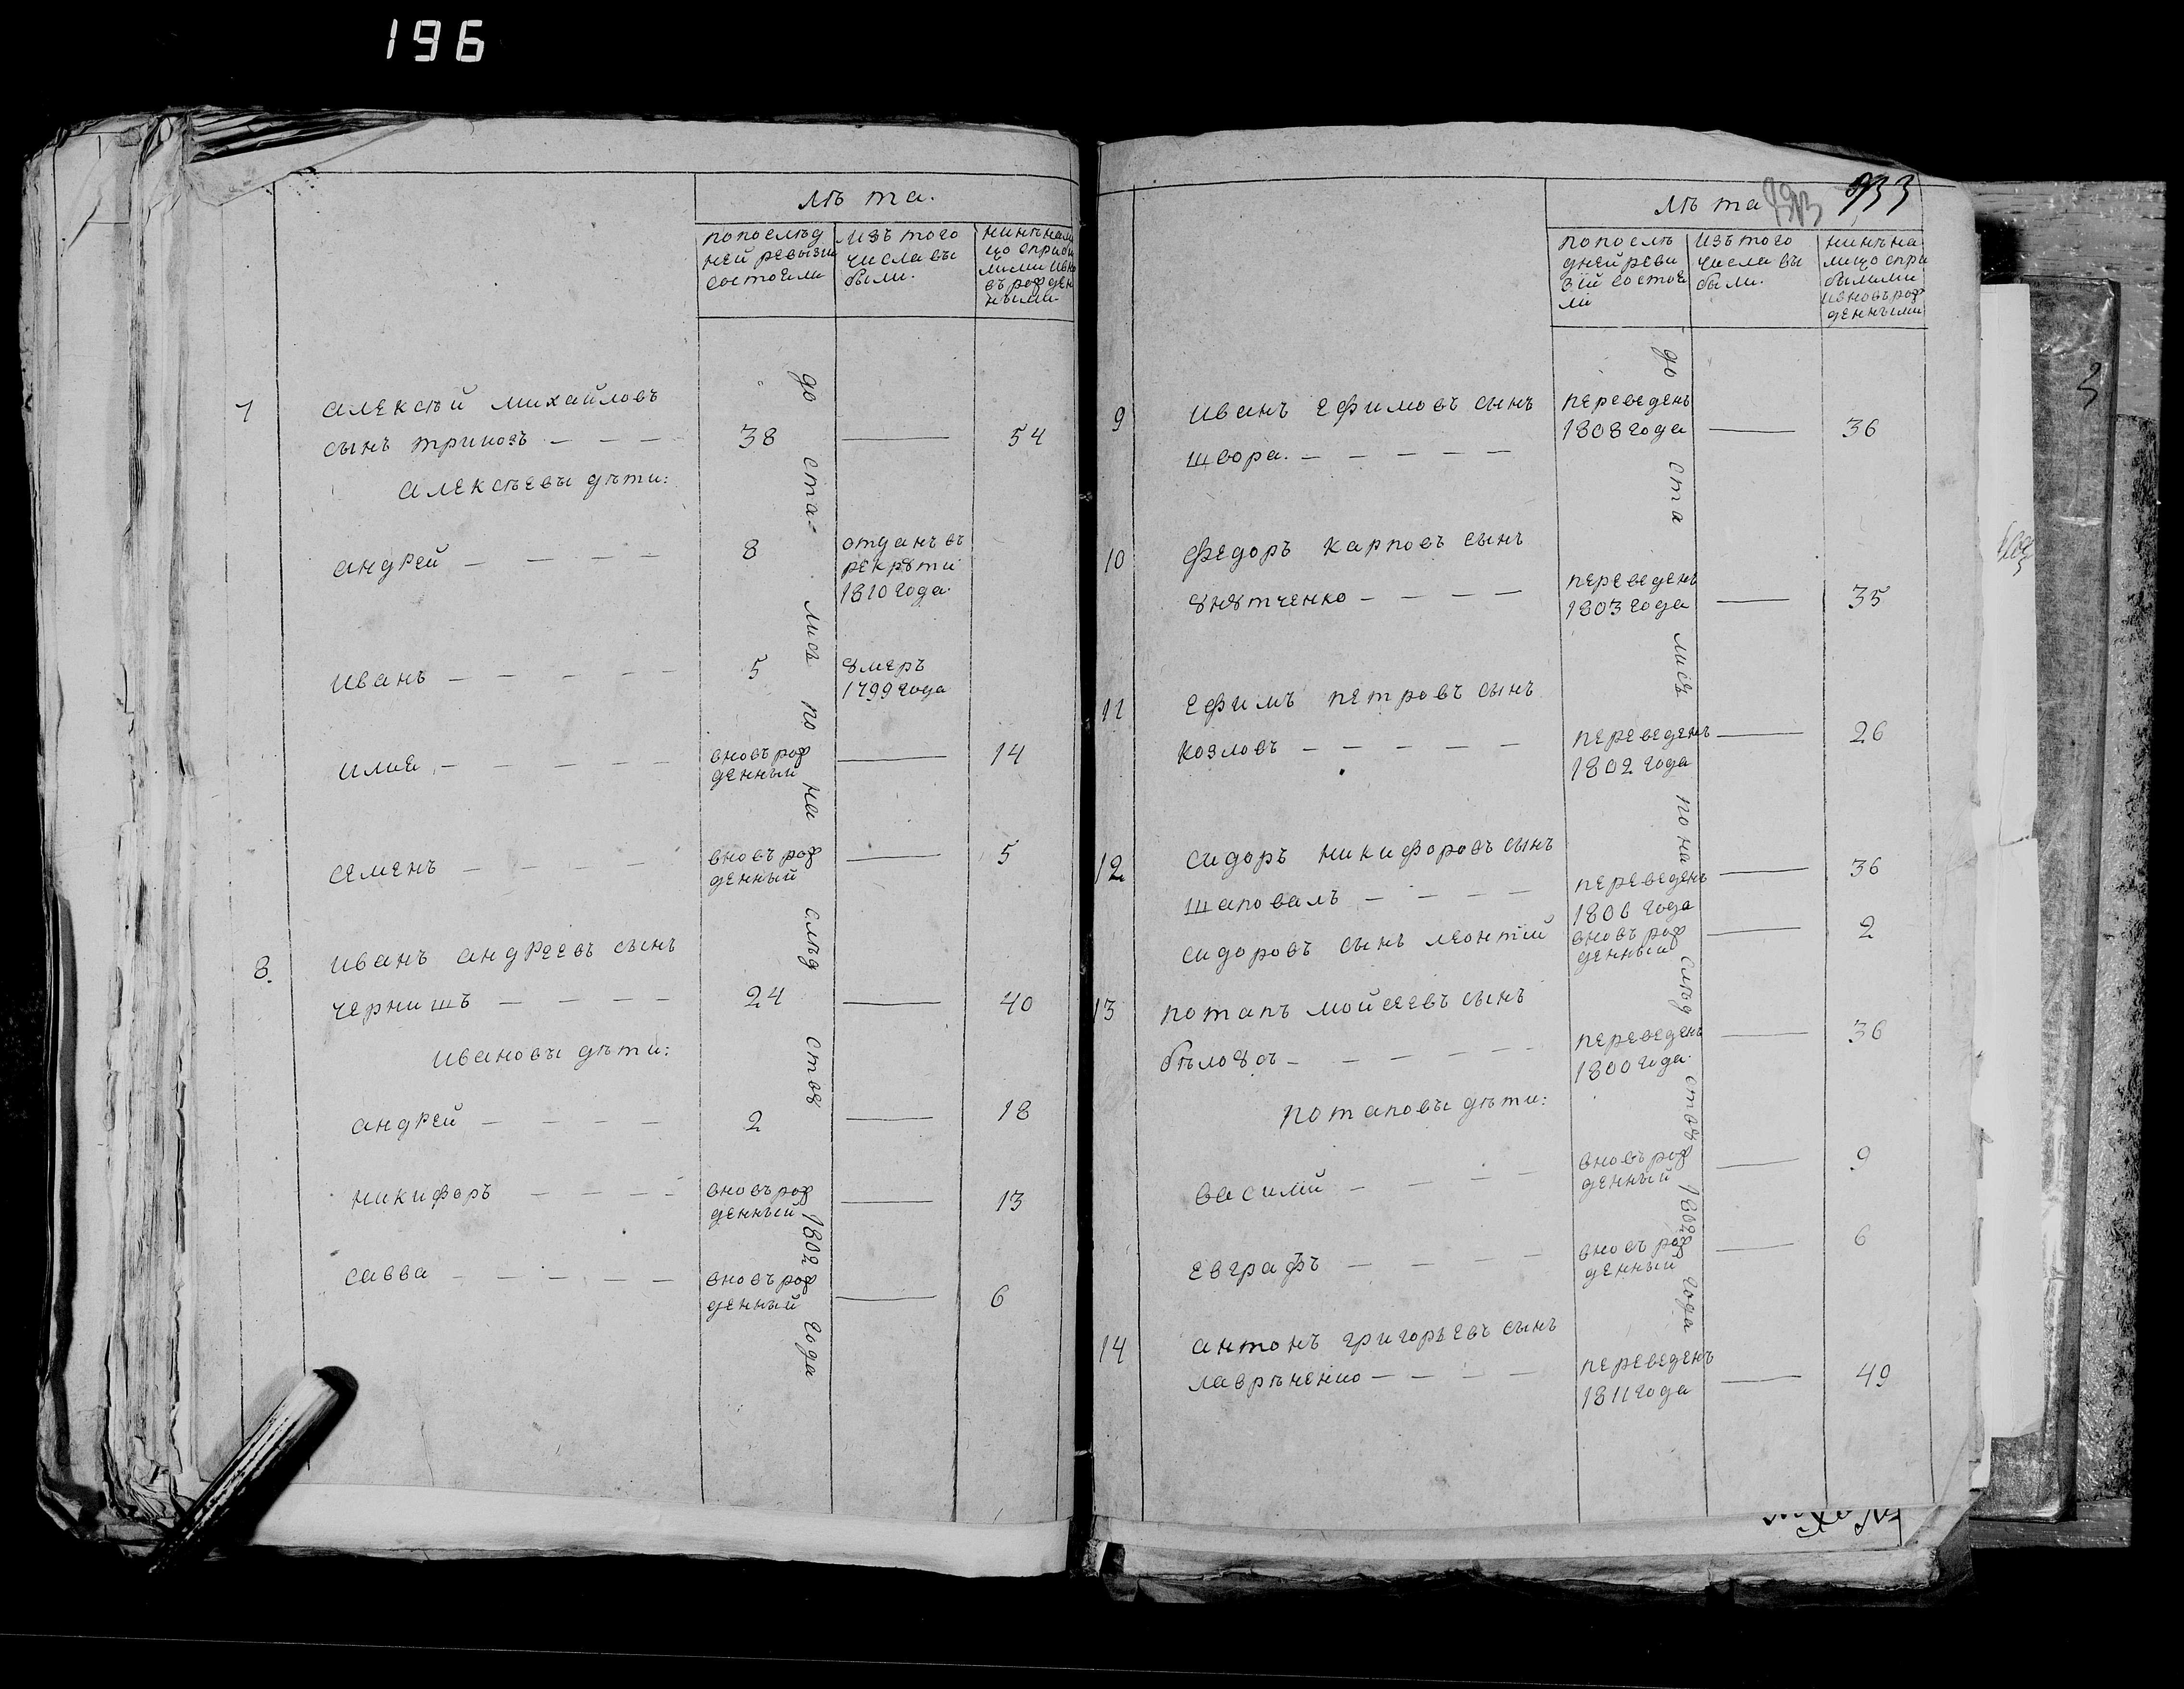 196
лѣта.
попослѣд
ней ревызіи
состоели
изъ того
числа вы
были.
нинѣ нали
цо спрыбы
лыми ивно
въ рож ден
ными
до ста= лисъ по на слѣд ствȣ 1802 года
7
алексѣй михайловъ
сынъ тринозъ — — —
38 — 54
алексѣевы дѣти:
андрей — — — —
8
отданъ въ
рекрȣти
1810 года.
иванъ — — — — —
5
ȣмеръ
1799 года
илия — — — — —
вновърож
денный — 14
семенъ — — — —
вновърож
денный — 5
8.
иванъ андреевъ сынъ
чернишъ — — — —
24 — 40
ивановы дѣти:
андрей — — — —
2 — 18
никифоръ — — — —
вновърож
денный — 13
савва — — — — —
вновърож
денный — 6
933
лѣта
попослѣ
дней реви
зіи состое
ли
изъ того
числа вы
были.
нинѣ на
лицо спри
былыми
ивновърож
денными
до ста лисъ по на слѣд ствȣ 1802 года
9
иванъ ефимовъ сынъ
швора. — — — — —
переведенъ
1808 года — 36
10
федоръ карповъ сынъ
ȣнȣтченко — — — —
переведенъ
1803 года — 35
11
ефимъ петровъ сынъ
козловъ — — — — —
переведенъ
1802 года — 26
12
сидоръ никифоровъ сынъ
шаповалъ — — — —
переведенъ
1806 года — 36
сидоровъ сынъ леонтій
вновърож
денный — 2
13
потапъ мойсеевъ сынъ
бѣлоȣсъ — — — — —
переведенъ
1800 года. — 36
потаповы дѣти:
василій — — — —
вновърож
денный — 9
евграфъ — — — —
вновърож
денный — 6
14
антонъ григорьевъ сынъ
лаврѣненко — — — —
переведенъ
1811 года — 49